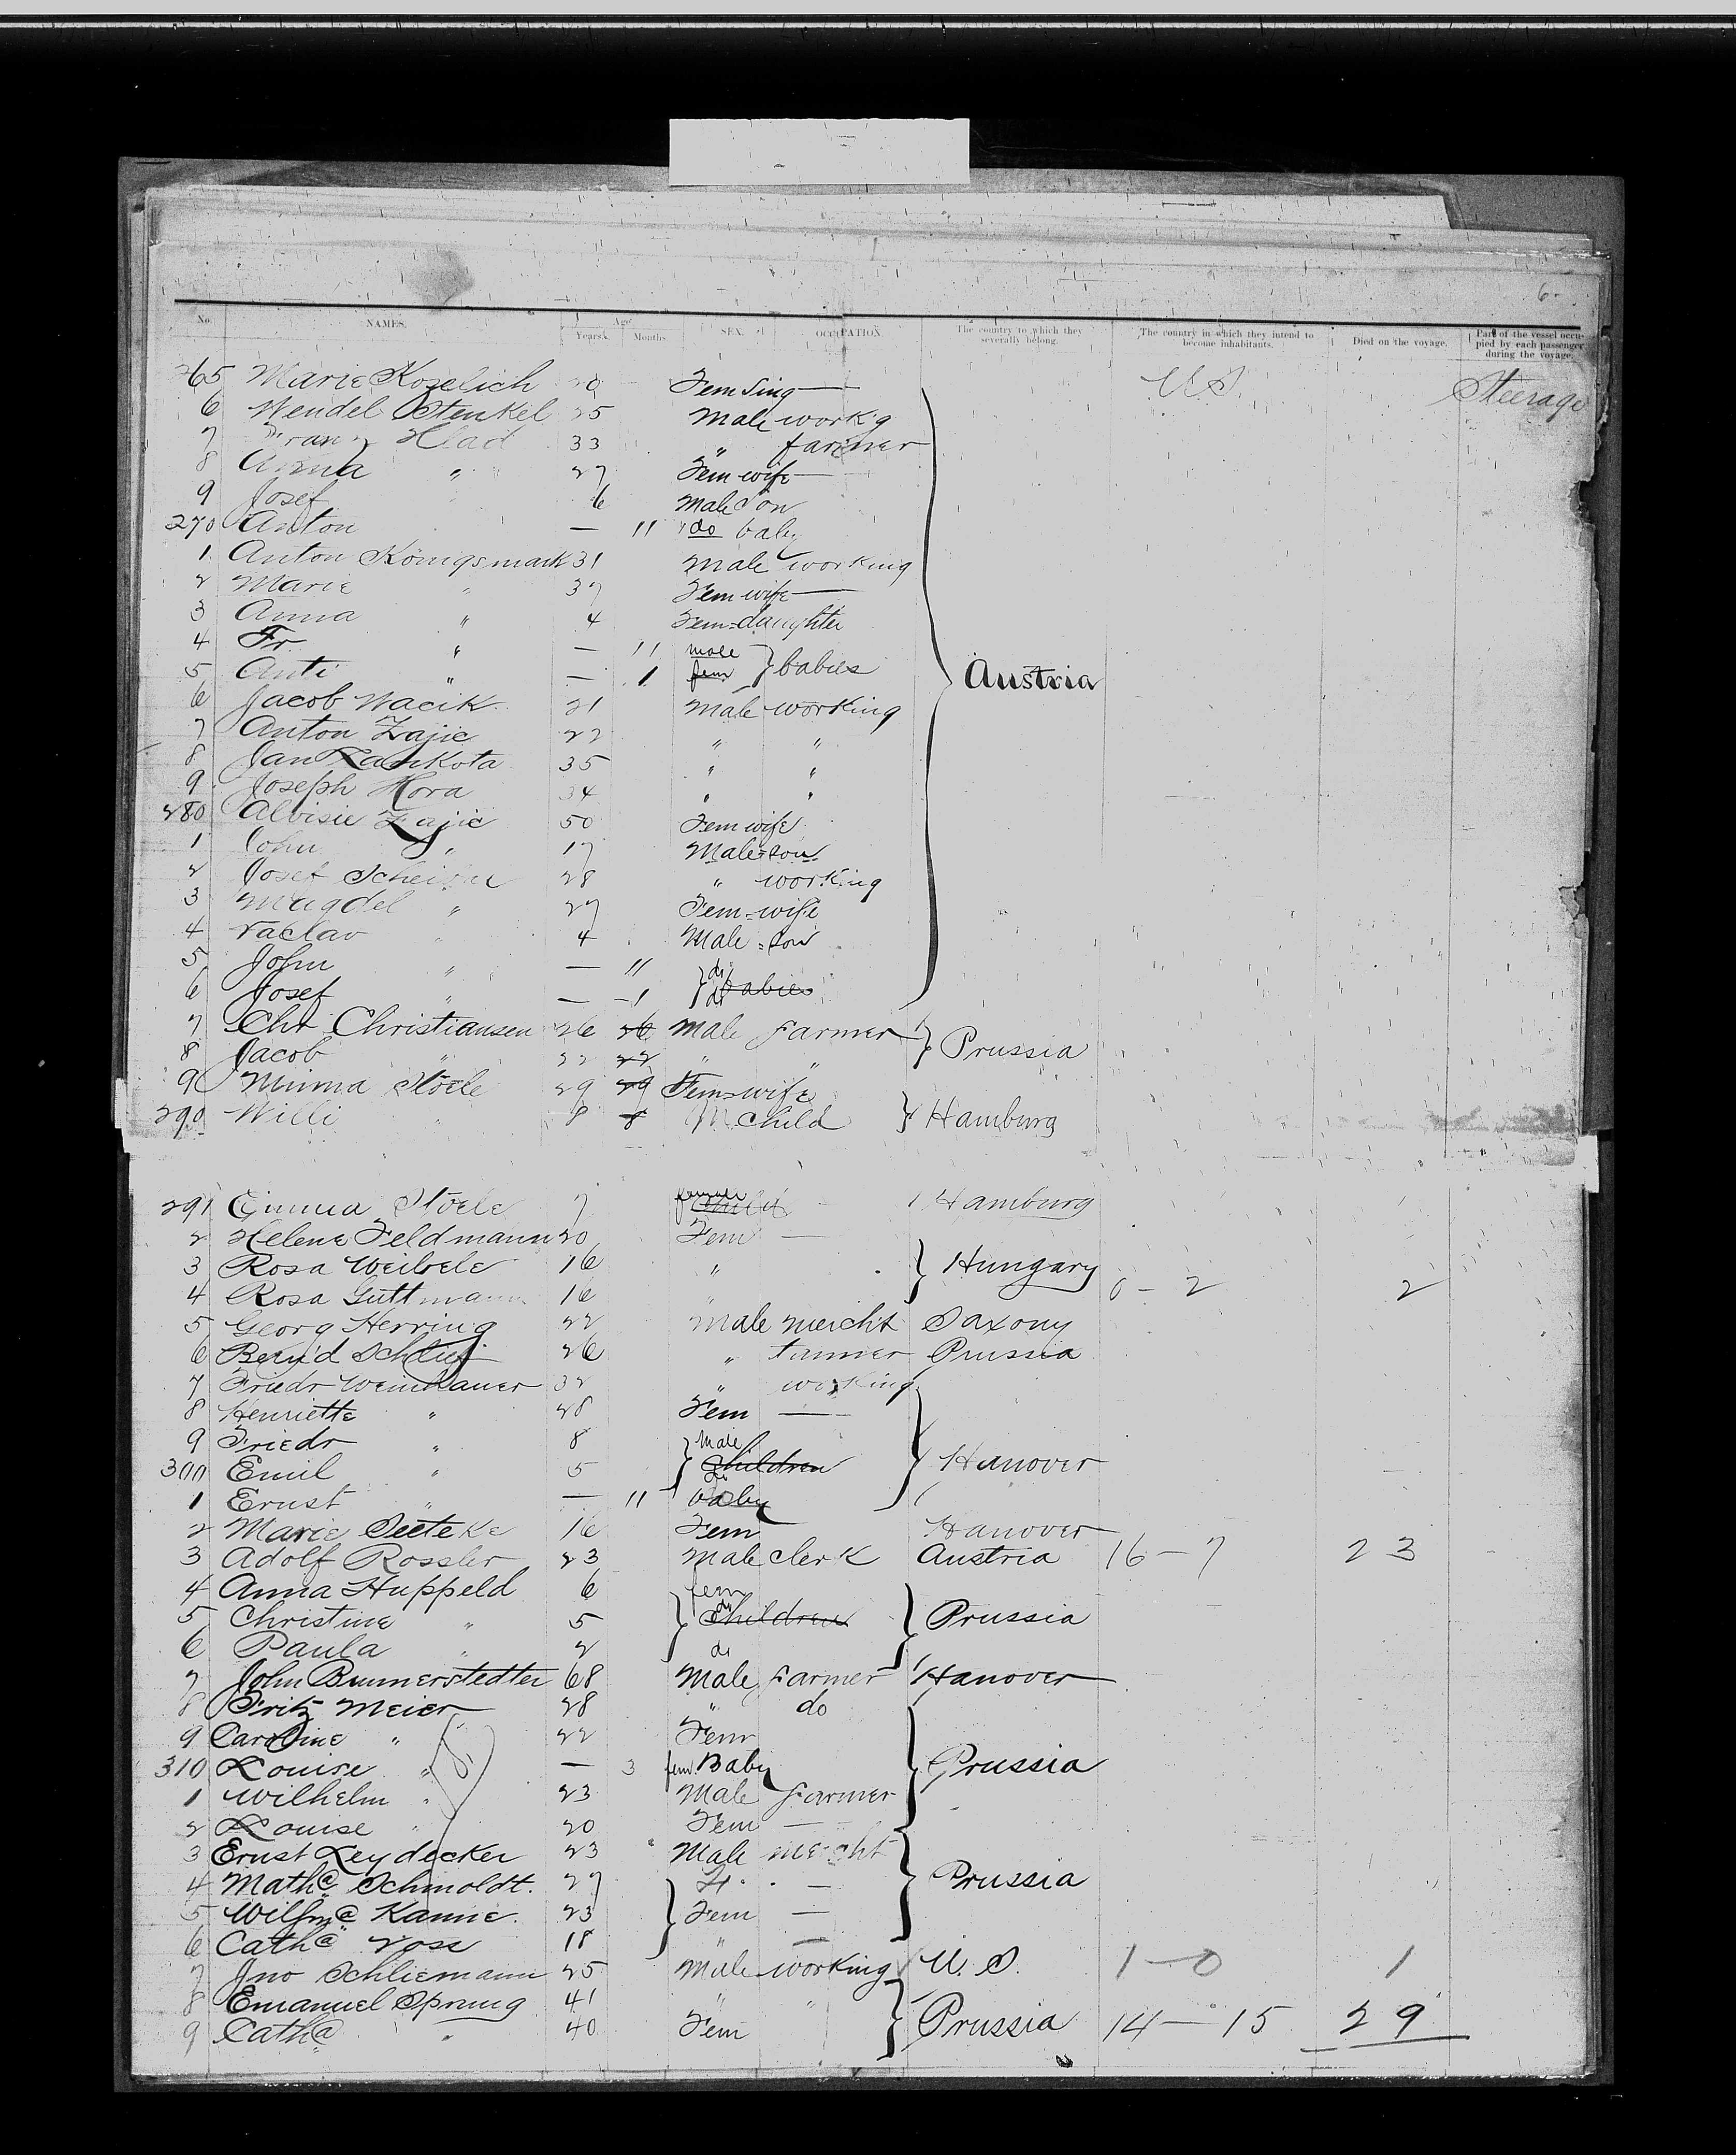 6.
No. NAMES. Age Years. Months. SEX. OCCUPATION. The country to which they severally belong. The country in which they intend to become inhabitants. Died on the voyage. Part of the vessel occupied by each passenger during the voyage.
265 Marie Kozelich 20 Fem Sing — U.S. Steerage
6 Wendel Stenkel 25 Male work'g
7 Franz Hlad 33 " farmer
8 Anna " 27 Fem wife —
9 Josef 6 Male Son
270 Anton — 11 " do baby
1 Anton Königsmark 31 Male working
2 Marie " 37 Fem wife —
3 Anna " 4 Fem-daughter
4 Fr. " — 11 male } babies
5 Anti " — 1 fem Austria
6 Jacob Wacik 21 Male working
7 Anton Zajic 22 " "
8 Jan Zankota 35 " "
9 Joseph Hora 34 " "
280 Alvisie Zajic 50 Fem wife
1 John " 17 Male=son
2 Josef 28 " working
3 Magdel " 27 Fem=wife
4 Vaclav " 4 Male=son
5 John " — 11 do
6 Josef " — 1 do babies
7 Chr Christiansen 26 26 Male farmer } Prussia
8 Jacob " 22 22 " "
9 Minna Stöele 29 29 Fem=wife
290 Willi " 8 8 M child } Hamburg
291 Emma Stöele 7 female child Hamburg
2 Helene Feldmann 20 Fem —
3 Rosa Weibele 16 " } Hungary 0 - 2 2
4 Rosa Guttmann 16 "
5 Georg Herring 22 Male mercht Saxony
6 Bern'd Schlief 26 " farmer Prussia
7 Friedr Weinhauer 32 " working
8 Henriette " 28 Fem —
9 Friedr " 8 male
300 Emil " 5 Children do } Hanover
1 Ernst " — 11 baby
2 Marie Seeteke 16 Fem Hanover
3 Adolf Rossler 23 Male clerk Austria 16 - 7 23
4 Anna Huppeld 6 fem
5 Christine " 5 do Children } Prussia
6 Paula " 2 do
7 John Bummerstedter 68 Male farmer Hanover
8 Fritz Meier 28 " do
9 Caroline " 22 Fem
310 Louise " — 3 fem. Baby } Prussia
1 Wilhelm " 23 Male farmer
2 Louise " 20 Fem —
3 Ernst Leydecker 23 Male mercht
4 Math@ Schmoldt. 27 — } Prussia
5 Wilhm@ Kanne. 23 Fem —
6 Cath@ Voss 18 " —
7 Jno Schliemann 25 Male working U.S. 1 - 0 1
8 Emanuel Sprung 41 " "
9 Cath@ " 40 Fem } Prussia 14 - 15 29